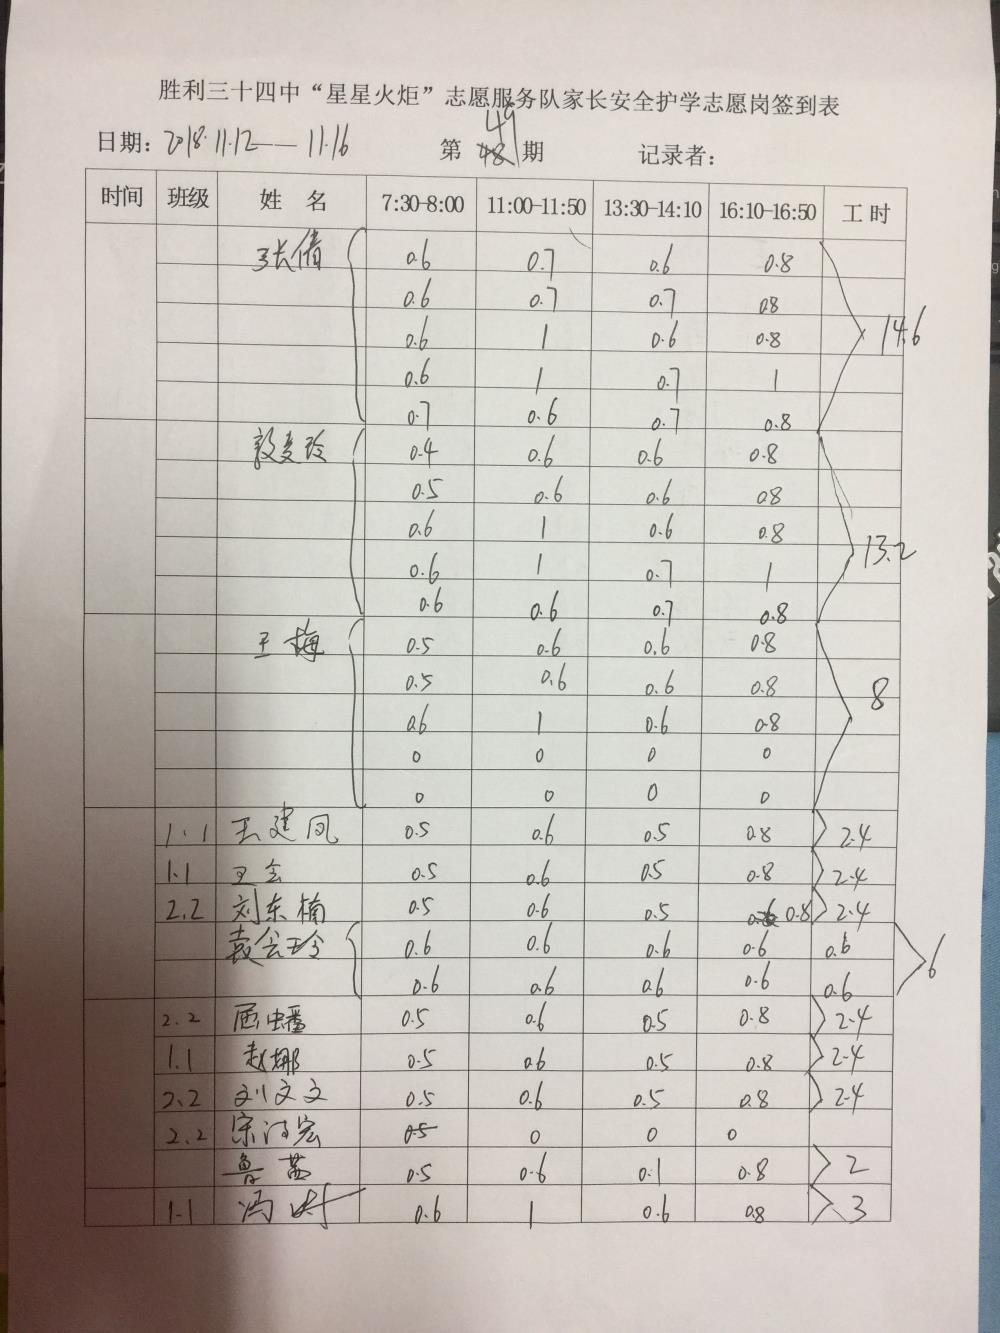 胜利三十四中“星星火炬”志愿服务队家长安全护学志愿岗签到表
日期: 2018.11.12——11.16 第 49 期 记录者:
时间 班级 姓 名 7:30-8:00 11:00-11:50 13:30-14:10 16:10-16:50 工时
张倩 0.6 0.7 0.6 0.8
0.6 0.7 0.7 0.8
0.6 1 0.6 0.8 14.6
0.6 1 0.7 1
0.7 0.6 0.7 0.8
0.4 0.6 0.6 0.8
0.5 0.6 0.6 0.8
0.6 1 0.6 0.8 13.2
0.6 1 0.7 1
0.6 0.6 0.7 0.8
王梅 0.5 0.6 0.6 0.8
0.5 0.6 0.6 0.8 8
0.6 1 0.6 0.8
0 0 0 0
0 0 0 0
1.1 王建凤 0.5 0.6 0.5 0.8 2.4
1.1 王会 0.5 0.6 0.5 0.8 2.4
2.2 刘东楠 0.5 0.6 0.5 0.8 2.4
袁会玲 0.6 0.6 0.6 0.6 0.6 6
0.6 0.6 0.6 0.6 0.6
2.2 屈蟠 0.5 0.6 0.5 0.8 2.4
1.1 赵娜 0.5 0.6 0.5 0.8 2.4
2.2 刘文文 0.5 0.6 0.5 0.8 2.4
2.2 宋 宏 0.5 0 0 0
鲁 0.5 0.6 0.1 0.8 2
1.1 冯 0.6 1 0.6 0.8 3